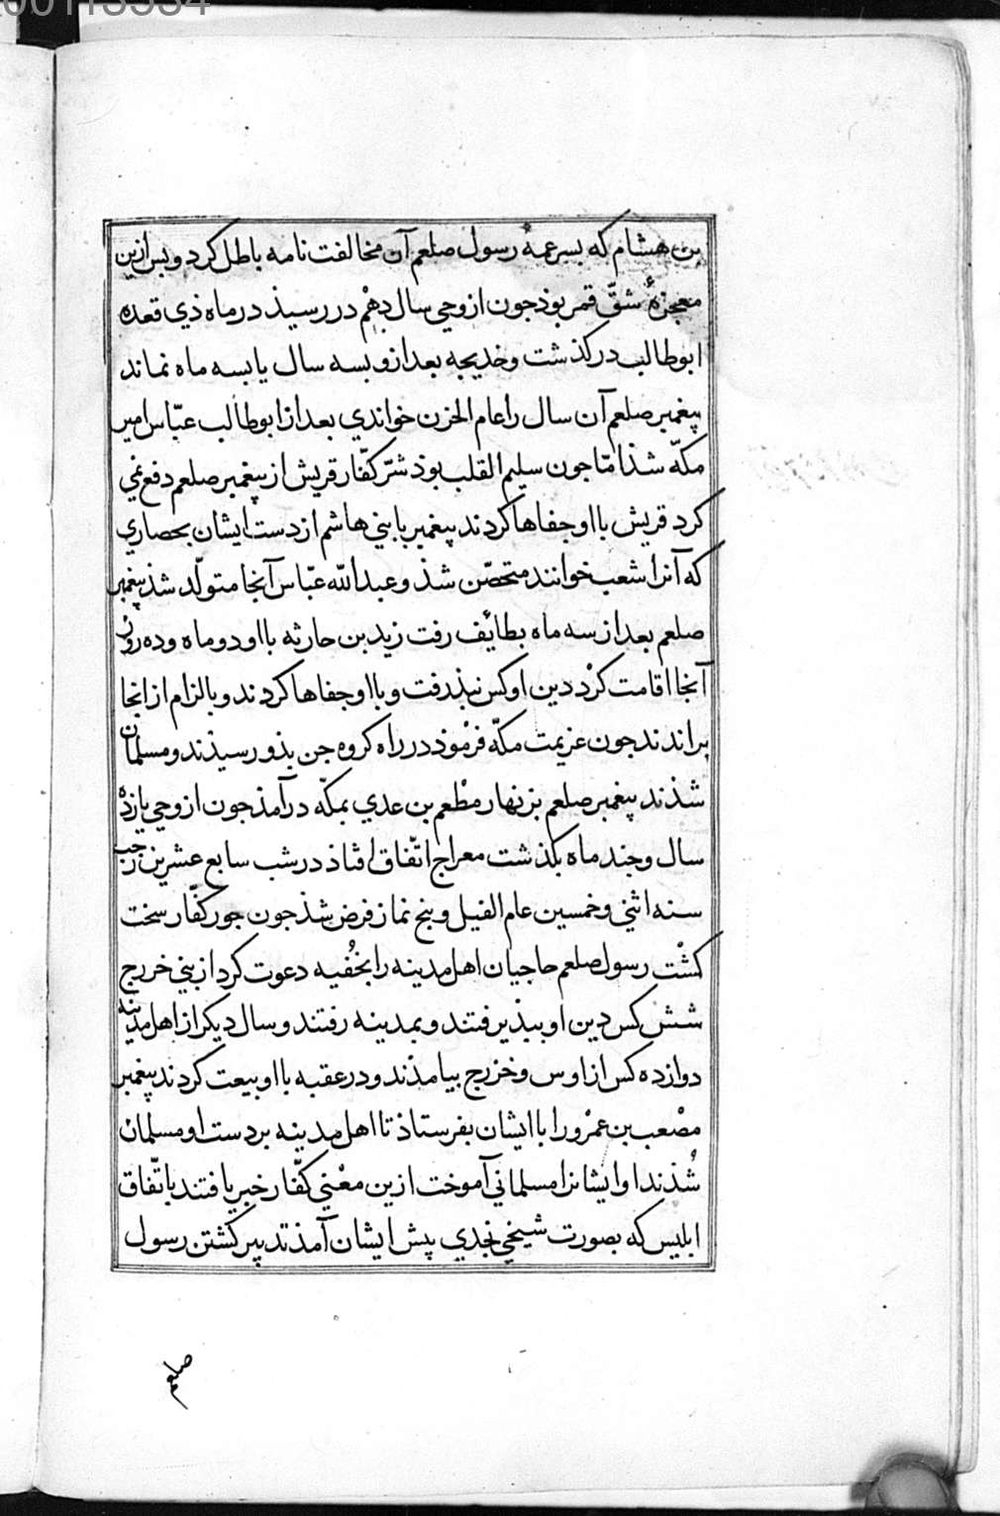 00113534
بن هشام که بسر عمهٔ رسول صلعم آن مخالفت نامه باطل کرد و بس ازین
معجزهٔ شقّ قمر بوذ جون از وحی سال دهم در رسیذ در ماه ذي قعده
ابوطالب در کذشت و خدیجه بعد ازو بسه سال یا بسه ماه نماند
پیغمبر صلعم آن سال را عام الحزن خواندي بعد از ابوطالب عبّاس امیر
مکّه شذ امّا جون سلیم القلب بوذ شرّ کفّار قریش از پیغمبر صلعم دفع نمي
کرد قریش با او جفاها کردند پیغمبر با بني هاشم از دست ایشان بحصاري
که آنرا شعب خوانند متحصّن شذ و عبد الله عبّاس آنجا متولّد شذ پیغمبر
صلعم بعد از سه ماه بطائف رفت زید بن حارثه با او دو ماه و ده روز
آنجا اقامت کرد دین او کس نبذرفت و با او جفاها کردند و بالزام از انجا
براندند جون عزیمت مکّه فرموذ در راه کروه جن بذو رسیذند و مسلمان
شذند پیغمبر صلعم بزنهار مطعم بن عدي بمکّه در آمذ جون از وحي یازده
سال و جند ماه بکذشت معراج اتّفاق افتاذ در شب سابع عشرین رجب
سنه اثني و خمسین عام الفیل و بنج نماز فرض شذ جون جور کفّار سخت
کشت رسول صلعم حاجیان اهل مدینه را بخُفیه دعوت کرد از بني خزرج
شش کس دین او ببذیرفتند و بمدینه رفتند و سال دیکر از اهل مدینه
دوازده کس از اوس و خزرج بیامذند و در عقبه با او بیعت کردند پیغمبر
مصعب بن عمرو را با ایشان بفرستاذ تا اهل مدینه بر دست او مسلمان
شُذند او ایشانرا مسلماني آموخت ازین معني کفّار خبر یافتند باتّفاق
ابلیس که بصورت شیخي نجدي پیش ایشان آمذ تدبیر کشتن رسول
صلعم